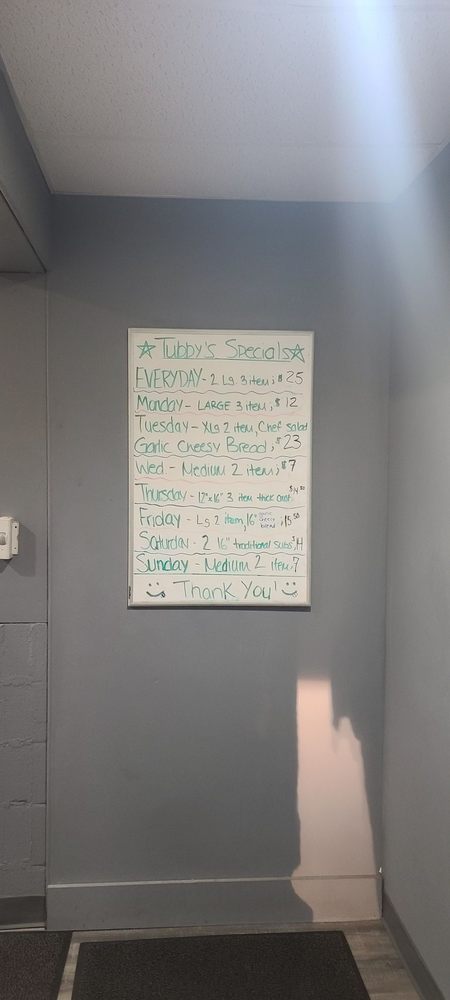 ☆ Tubby's Specials ☆
EVERYDAY - 2 Lg. 3 item; $25
Monday - LARGE 3 item; $12
Tuesday - XLg 2 item, Chef Salad
Garlic Cheesy Bread; $23
Wed. - Medium 2 item; $7
Thursday - 12"x16" 3 item thick crust
Friday - Lg 2 item, 16" garlic cheesy bread; $15.50
Saturday - 2 16" traditional subs $14
Sunday - Medium 2 item 7
Thank You!